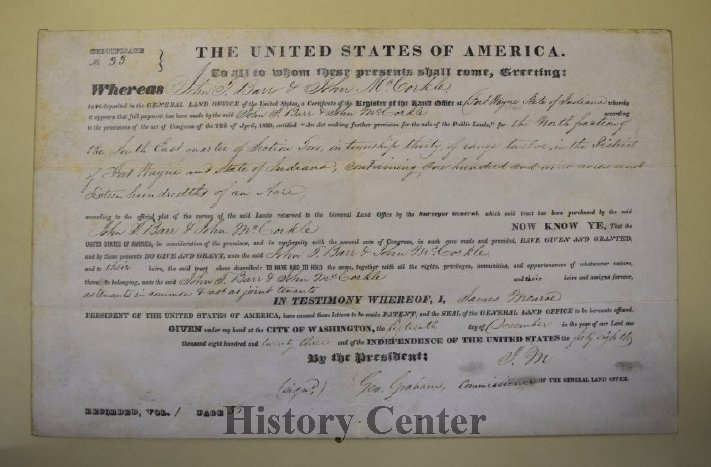 CERTIFICATE
№ 33
THE UNITED STATES OF AMERICA.
To all to whom these presents shall come, Greeting:
Whereas John T. Barr & John McCorkle
deposited in the GENERAL LAND OFFICE of the United States, a Certificate of the Register of the Land Office at Fort Wayne, State of Indiana whereby
it appears that full payment has been made by the said John T. Barr & John McCorkle according
to the provisions of the act of Congress of the 24th of April, 1820, entitled "An act making further provision for the sale of the Public Lands," for the North fraction of
the South East quarter of Section Two, in township thirty of range twelve, in the District
of Fort Wayne and State of Indiana, containing One hundred and acres and
Sixteen hundredths of an Acre
according to the official plat of the survey of the said Lands returned to the General Land Office by the Surveyor General, which said tract has been purchased by the said
John T. Barr & John McCorkle NOW KNOW YE, That the
UNITED STATES OF AMERICA, in consideration of the premises, and in conformity with the several acts of Congress, in such case made and provided, HAVE GIVEN AND GRANTED,
and by these presents DO GIVE AND GRANT, unto the said John T. Barr & John McCorkle
and to their heirs, the said tract above described: TO HAVE AND TO HOLD the same, together with all the rights, privileges, immunities, and appurtenances of whatsoever nature,
thereto belonging, unto the said John T. Barr & John McCorkle and their heirs and assigns forever,
as tenants in common & not as joint tenants
IN TESTIMONY WHEREOF, I, James Monroe
PRESIDENT OF THE UNITED STATES OF AMERICA, have caused these Letters to be made PATENT, and the SEAL of the GENERAL LAND OFFICE to be hereunto affixed.
GIVEN under my hand at the CITY OF WASHINGTON, the day of December in the year of our Lord one
thousand eight hundred and twenty three and of the INDEPENDENCE OF THE UNITED STATES the forty eighth
By the President: J. M
(signd) Geo. Graham, Commissioner OF THE GENERAL LAND OFFICE.
RECORDED, VOL. 1 PAGE
History Center